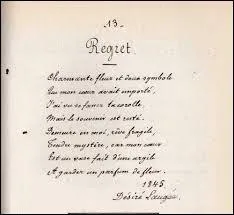 13.
Regret.
Charmante fleur et doux symbole
Que mon cœur avait emporté,
J'ai vu se faner ta corolle
Mais le souvenir est resté.
Demeure en moi, rêve fragile,
Tendre mystère, car mon cœur
Est un vase fait d'une argile
A garder un parfum de fleur.
1845.
Désiré Laugée